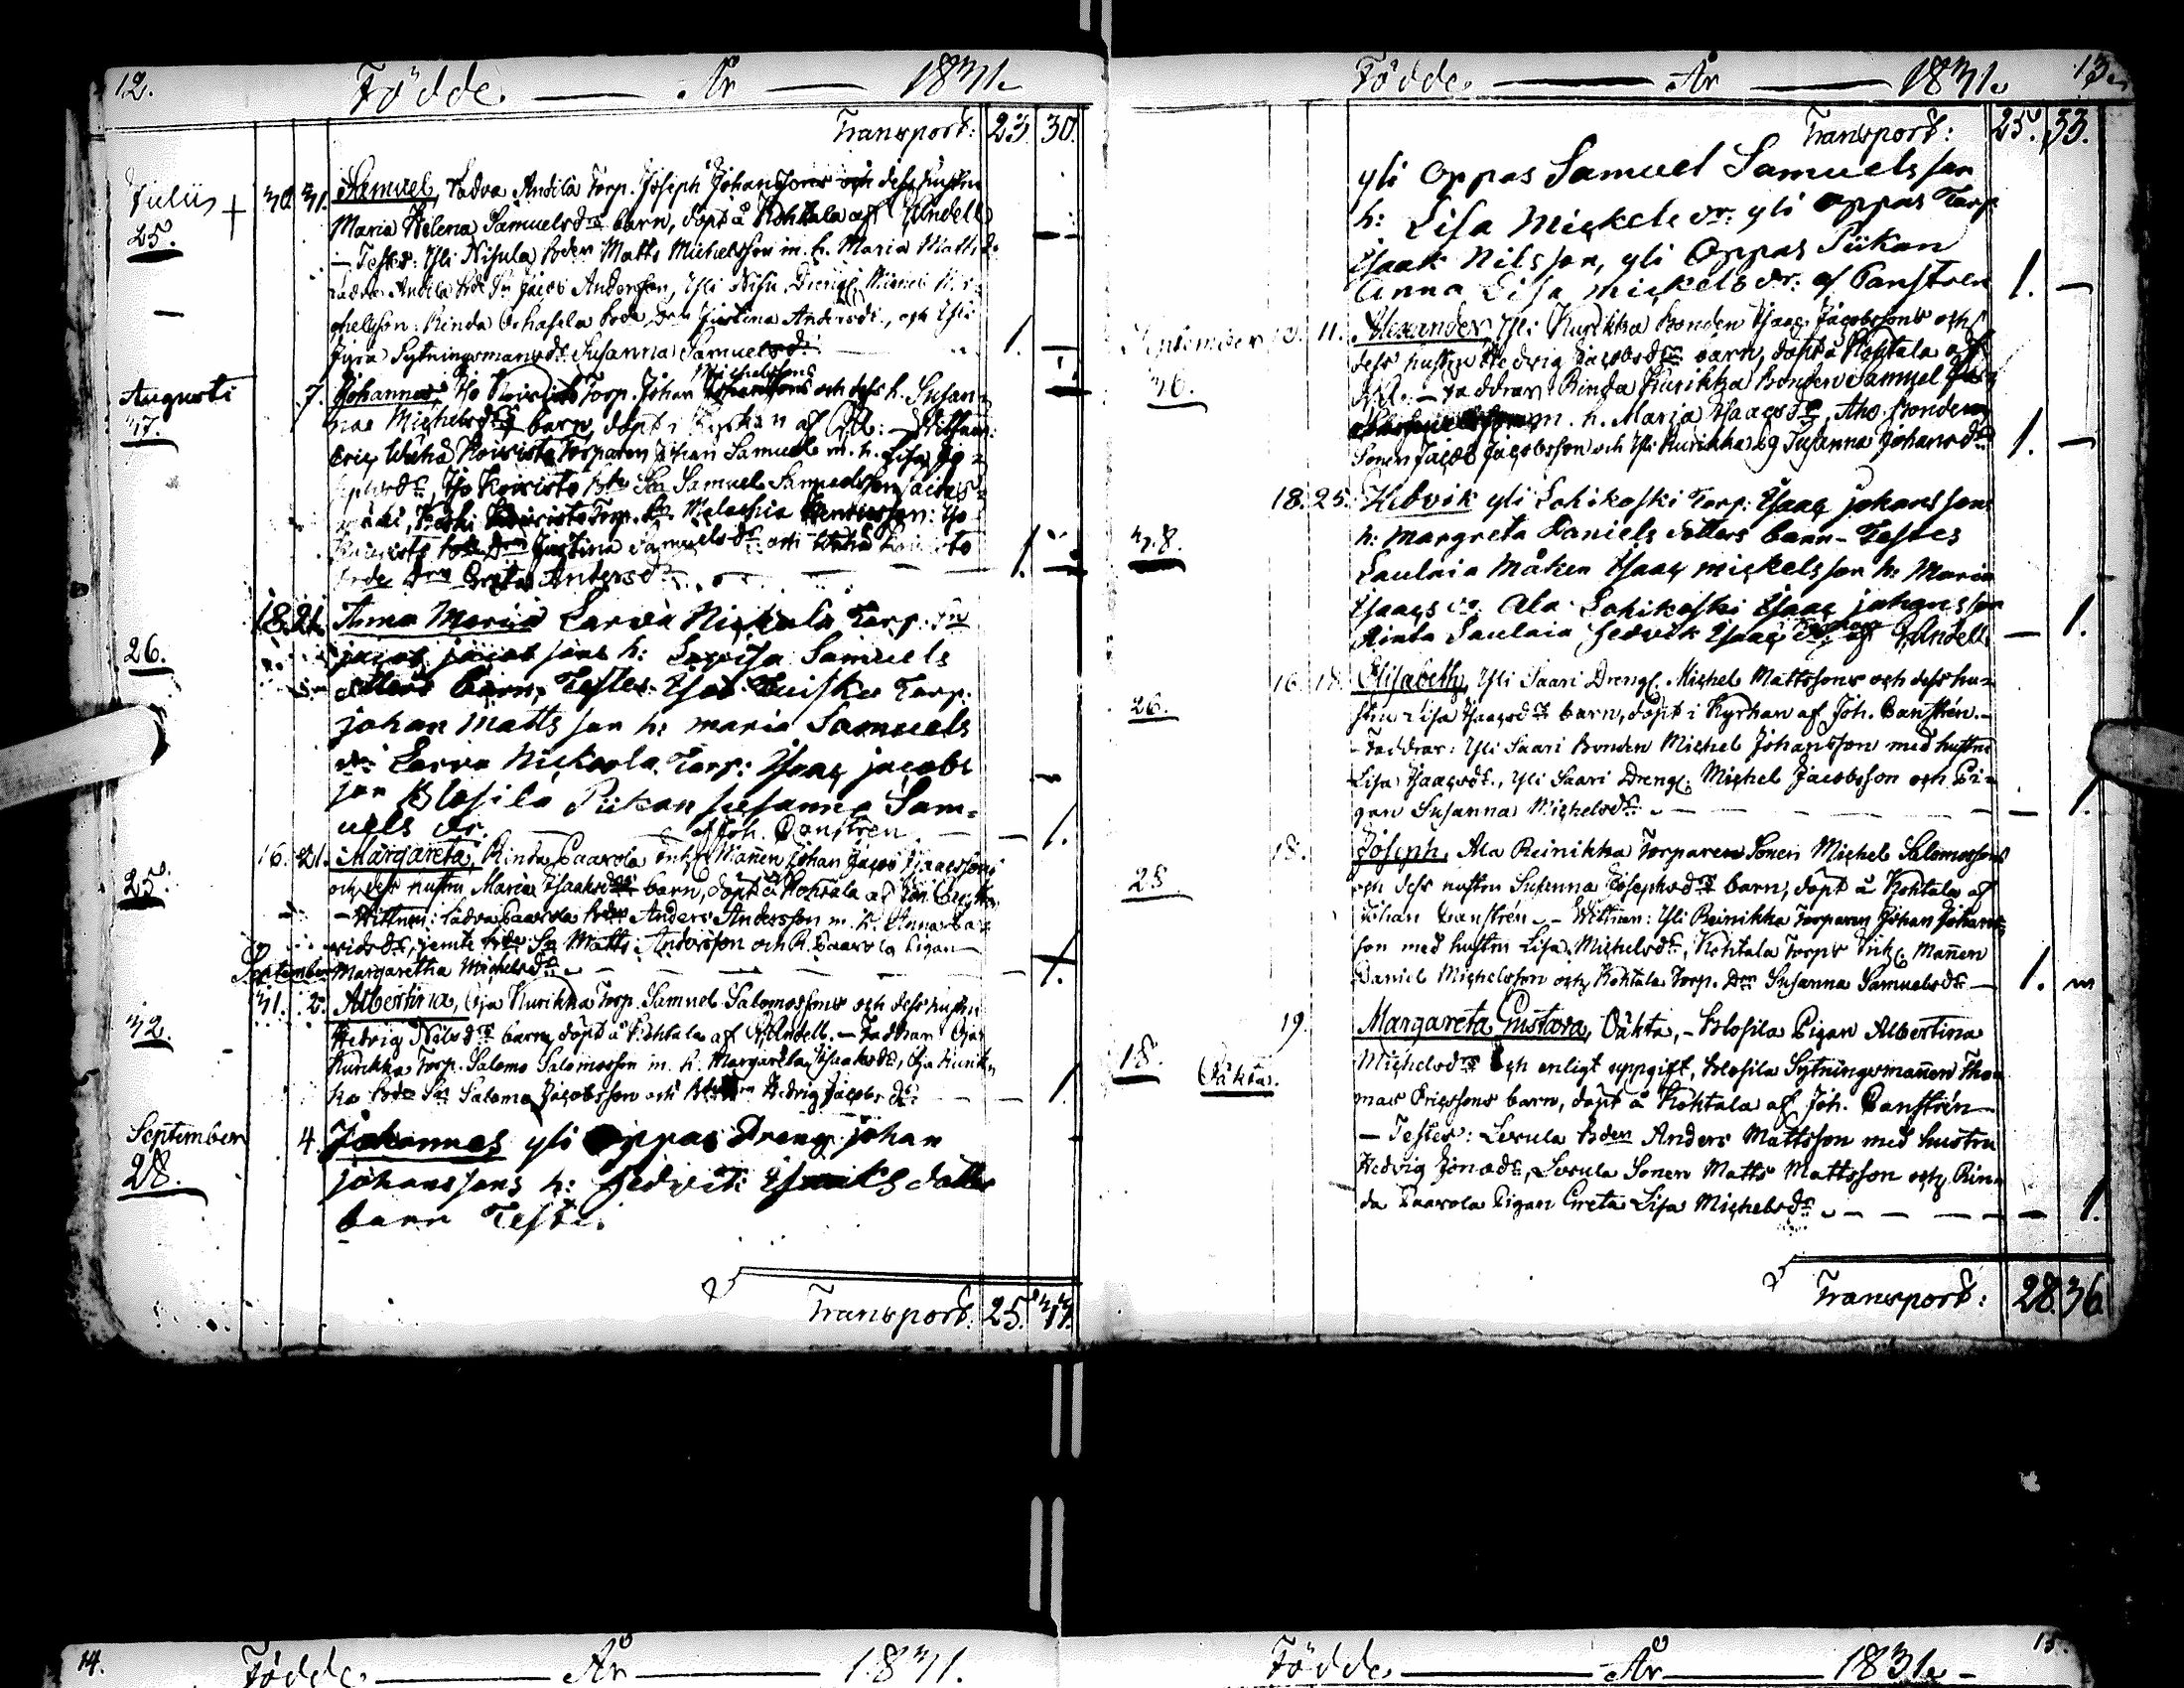 12. Födde. — År — 1831.
Transport: 23. 30.
Julii + 30. 31. Samuel, Ladva Andila Torp. Joseph Johanssons och dess hustru
25. Maria Helena Samuelsdrs barn, döpt å Kohtala af Andell
— Testes: Yli Nisula Boden Matts Michelsson m. h. Maria Mattsdr
Ladva Andila Bde Sn Jacob Andersson, Yli Nisu Dreng. Michel Mi-
chelsson: Rinda Bde Drn Justina Andersdr, och Yli
Jyra Sytningsmans dr. Susanna Samuelsdr. 1. —
Augusti 7. Johannes, Iso Koivisto Torp. Johan Michelssons och dess h. Susan-
37. nas Michelsdrs barn, döpt i Kyrkan af — Wittnen:
Wähä Koivisto Torparen Johan Samuels m. h. Lisa Jo-
sephsdr, Iso Koivisto Bde Sn Samuel Samuelsson
Koski Koivisto Torp. Malachia Henricsson: Iso
Koivisto Bde Drn Justina Samuelsdr och Wähä Koivisto
Bde Drn Greta Andersdr. 1. —
18. 21. Anna Maria Larva Nickula Torp.
26. jacob jacobsons h: Lovisa Samuels
dotters Barn, Testes. Torp.
johan Matts son h: maria Samuels
dr: Larva Nickaola Torp: Ysaac jacobs
son Blosila Piikan susanna Sam-
uels dr. af Joh. Canstrén — 1.
16. 21. Margareta, Rinda Paavola Inh. Mannen Johan Jacob Isaacssons
25. och dess hustru Maria Isaaksdrs barn, döpt å Kohtala af Joh. Canstrén
— Wittnen: Ladva Paavola Bden Anders Andersson m. h. Anna
ridsdr, jemte Bde Sn Matts Andersson och R. Paavola Pigan
September Margaretha Michelsdr — 1.
31. 2. Albertina, Oja Kurikka Torp. Samuel Salomossons och dess hustru
32. Hedvig Nilsdrs barn, döpt å Kohtala af Andell. — Faddrar Oja
Kurikka Torp. Salomo Salomosson m. h. Margareta Isaaksdr, Oja Kurik-
ka Bde Sn Salomo Jacobsson och Bde Drn Hedvig Jacobsdr — 1.
September 4. Johannes yli Oppas Dreng johan
28. johanssons h: Hedvik Ysaaks dotter
barn Testes.
Transport: 25. 33.
Födde. — År — 1831. 13.
Transport: 25. 33.
yli Oppas Samuel Samuelsson
h: Lisa Mickels dr: yli Oppas Torp
Ysaak Nilsson, yli Oppas Piikan
Anna Lisa mickels dr: af Canstren 1. —
September 10. 11. Alexander, Yli Kurikka Bonden Isaac Jacobssons och
36. dess hustru Hedvig Jacobsdrs barn, döpt å Kohtala af
— Faddrar: Rinda Kurikka Bonden Samuel
m. h. Maria Isaacsdr, Aho Bonden
Sonen Jacob Jacobsson och Yli Kurikka Susanna Johansdr 1. —
18. 25. Hedvik yli Lohikoski Torp: Ysaac johanssons
38. h: Margreta Daniels dotters barn - Testes
Laulaia Måken Ysaac mickelsson h: Maria
Ysaacs dr. Ala Lohikoski Ysaac johansson
Rinta Laulaia Hedvik Ysaac dr: af Andell — 1.
16. 18. Elisabeth, Yli Saari Dreng. Michel Mattssons och dess hu-
26. stru Lisa Isaacsdrs barn, döpt i Kyrkan af Joh. Canstrén. —
— Faddrar: Yli Saari Bonden Michel Johansson med hustru
Lisa Isaacsdr, Yli Saari Dreng. Michel Jacobsson och Pi-
gan Susanna Michelsdr. — 1.
18. Joseph, Ala Reinikka Torparen Sonen Michel Salomossons
25. och dess hustru Susanna Josephsdrs barn, döpt å Kohtala af
Johan Canstrén. — Wittnen: Yli Reinikka Torparen Johan Johans-
son med hustru Lisa Michelsdr, Kohtala Torps Inh. Mannen
Daniel Michelsson och Kohtala Torp. Drn Susanna Samuelsdr — 1. —
19. Margareta Gustava, Oäkta, - Blosila Pigan Albertina
18. Oäkta. Michelsdrs och enligt uppgift, Blosila Sytningsmannen Tho-
mas Ericssons barn, döpt å Kohtala af Joh. Canstrén —
— Testes: Levula Bden Anders Mattsson med hustru
Hedvig Jonædr, Levula Sonen Matts Mattsson och Rin-
da Paavola Pigan Greta Lisa Michelsdr. — 1.
Transport: 28. 36.
14. Födde. — År — 1831.
Födde. — År — 1831. 15.